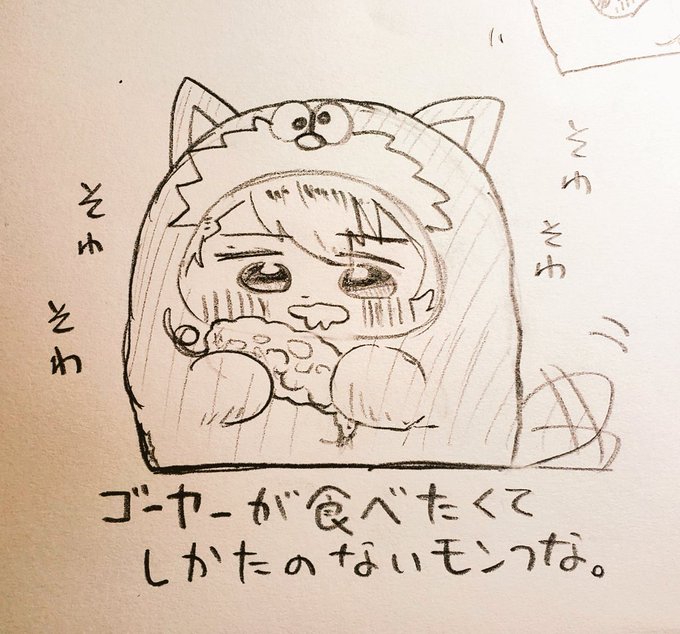 そわ
そわ
そわ
そわ
ゴーヤーが食べたくて
しかたのないモンつな。